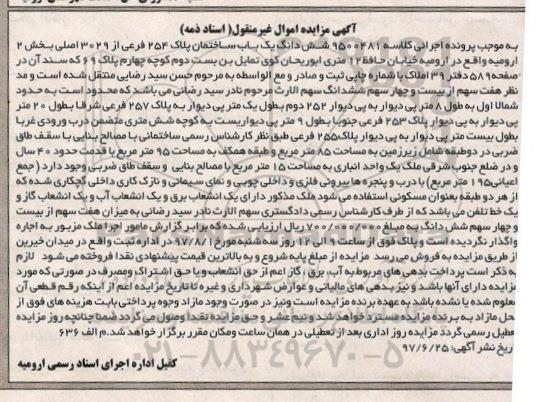 آگهی مزایده اموال غیرمنقول( اسناد ذمه)
به موجب پرونده اجرائی کلاسه ۹۵۰۰۴۸۱ شش دانگ یک باب ساختمان پلاک ۲۵۴ فرعی از ۳۰۲۹ اصلی بخش ۲
ارومیه واقع در ارومیه خیابان حافظ۱۲ متری ابوریحان کوی تمایل بن بست دوم کوچه چهارم پلاک ۶۹ که سند آن در
صفحه۵۸۹ دفتر ۳۹ املاک با شماره چاپی ثبت و صادر و مع الواسطه به مرحوم حسن سید رضایی منتقل شده است و مد
نظر هفت سهم از بیست و چهار سهم ششدانگ سهم الارث مرحوم نادر سید رضائی می باشد که محدود است به حدود
شمالا اول به طول ۸ متر پی دیوار به پی دیوار ۲۵۲ دوم بطول یک متر پی دیوار به پلاک ۲۵۷ فرعی شرقا بطول ۲۰ متر
پی دیوار به پی دیوار پلاک ۲۵۳ فرعی جنوبا بطول ۹ متر پی دیواریست به کوچه شش متری متضمن درب ورودی غربا
بطول بیست متر پی دیوار به پی دیوار پلاک۲۵۵ فرعی طبق نظر کارشناس رسمی ساختمانی با مصالح بنایی با سقف طاق
ضربی در دوطبقه شامل زیرزمین به مساحت ۸۵ متر مربع و طبقه همکف به مساحت ۹۵ متر مربع با قدمت حدود ۴۰ سال
و در ضلع جنوب شرقی ملک یک واحد انباری به مساحت ۱۵ متر مربع با مصالح بنایی و سقف طاق ضربی وجود دارد ( جمع
اعیانی۱۹۵ متر مربع) با درب و پنجره ها بیرونی فلزی و داخلی چوبی و نمای سیمانی و نازک کاری داخلی گچکاری شده که
از هر دو طبقه بعنوان مسکونی استفاده می شود ملک مذکور دارای یک انشعاب برق و یک انشعاب آب و یک انشعاب گاز و
یک خط تلفن می باشد که از طرف کارشناس رسمی دادگستری سهم الارث نادر سید رضائی به میزان هفت سهم از بیست
و چهار سهم شش دانگ به مبلغ ریال ارزیابی شده که برابر گزارش مامور اجرا ملک مزبور به اجاره
واگذار نگردیده است و پلاک فوق از ساعت ۹ الی ۱۲ روز سه شنبه مورخ ۹۷/۸/۱ در اداره ثبت واقع در میدان خیرین
از طریق مزایده به فروش می رسد مزایده از مبلغ پایه شروع و به بالاترین قیمت پیشنهادی نقدا فروخته می شود لازم
به ذکر است پرداخت بدهی های مربوط به آب، برق ، گاز اعم از حق انشعاب و یا حق اشتراک و مصرف در صورتی که مورد
مزایده دارای آنها باشد و نیز بدهی های مالیاتی و عوارض شهرداری و غیره تا تاریخ مزایده اعم از اینکه رقم قطعی آن
معلوم شده یا نشده باشد به عهده برنده مزایده است ونیز در صورت وجود مازاد وجوه پرداختی بابت هزینه های فوق از
محل مازاد به برنده مزایده مسترد خواهد شد و نیم عشر و حق مزایده نقدا وصول می گردد ضمنا چنانچه روز مزایده
عطیل رسمی گردد مزایده روز اداری بعد از تعطیلی در همان ساعت ومکان مقرر برگزار خواهد شد.م الف ۶۳۶
ریخ نشر آگهی: ۹۷/۶/۲۵
کفیل اداره اجرای اسناد رسمی ارومیه
۰۲۱-۸۸۳۴۹۶۷۰-۵